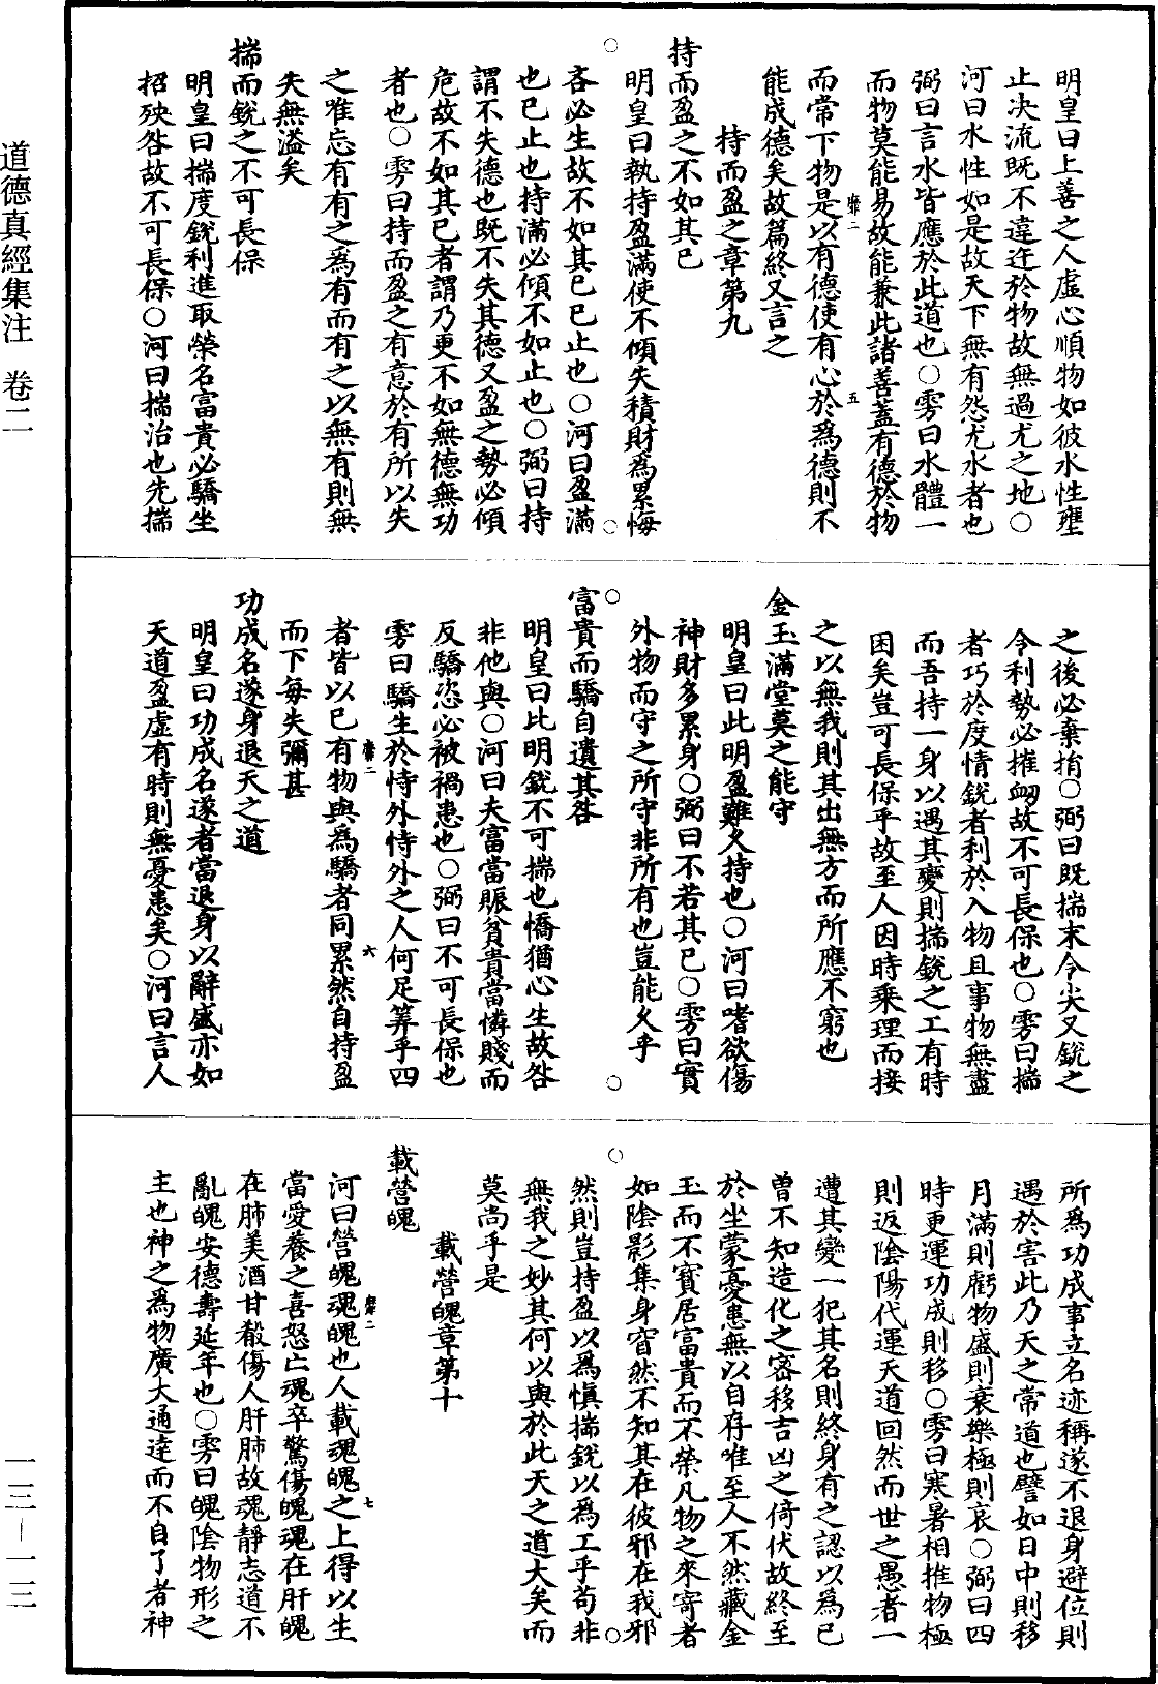 道德真經集注 卷二
一三－一一三
明皇曰上善之人虛心順物如彼水性壅
止决流既不違迕於物故無過尤之地○
河曰水性如是故天下無有怨尤水者也
弼曰言水皆應於此道也○雱曰水體一
而物莫能易故能兼此諸善蓋有德於物
而常下物是以有德使有心於為德則不
能成德矣故篇終又言之
持而盈之章第九
持而盈之不如其已
明皇曰執持盈滿使不傾失積財為累悔
吝必生故不如其已已止也○河曰盈滿
也已止也持滿必傾不如止也○弼曰持
謂不失德也既不失其德又盈之勢必傾
危故不如其已者謂乃更不如無德無功
者也○雱曰持而盈之有意於有所以失
之唯忘有有之為有而有之以無有則無
失無溢矣
揣而銳之不可長保
明皇曰揣度銳利進取榮名富貴必驕坐
招殃咎故不可長保○河曰揣治也先揣
之後必棄捐○弼曰既揣末令尖又銳之
令利勢必摧衂故不可長保也○雱曰揣
者巧於度情銳者利於入物且事物無盡
而吾持一身以遇其變則揣銳之工有時
困矣豈可長保乎故至人因時乘理而接
之以無我則其出無方而所應不窮也
金玉滿堂莫之能守
明皇曰此明盈難久持也○河曰嗜欲傷
神財多累身○弼曰不若其已○雱曰實
外物而守之所守非所有也豈能久乎
富貴而驕自遺其咎
明皇曰此明銳不可揣也憍猶心生故咎
非他與○河曰夫富當賑貧貴當憐賤而
反驕恣必被禍患也○弼曰不可長保也
雱曰驕生於恃外恃外之人何足筭乎四
者皆以已有物與為驕者同累然自持盈
而下每失彌甚
功成名遂身退天之道
明皇曰功成名遂者當退身以辭盛亦如
天道盈虛有時則無憂患矣○河曰言人
所為功成事立名迹稱遂不退身避位則
遇於害此乃天之常道也譬如日中則移
月滿則虧物盛則衰樂極則哀○弼曰四
時更運功成則移○雱曰寒暑相推物極
則返陰陽代運天道回然而世之愚者一
遭其變一犯其名則終身有之認以為已
曾不知造化之密移吉凶之倚伏故終至
於坐蒙憂患無以自存唯至人不然藏金
玉而不寳居富貴而不榮凡物之來寄者
如陰影集身窅然不知其在彼邪在我邪
然則豈持盈以為慎揣銳以為工乎苟非
無我之妙其何以與於此天之道大矣而
莫尚乎是
載營魄章第十
載營魄
河曰營魄魂魄也人載魂魄之上得以生
當愛養之喜怒亡魂卒驚傷魄魂在肝魄
在肺美酒甘殽傷人肝肺故魂靜志道不
亂魄安德壽延年也○雱曰魄陰物形之
主也神之為物廣大通達而不自了者神